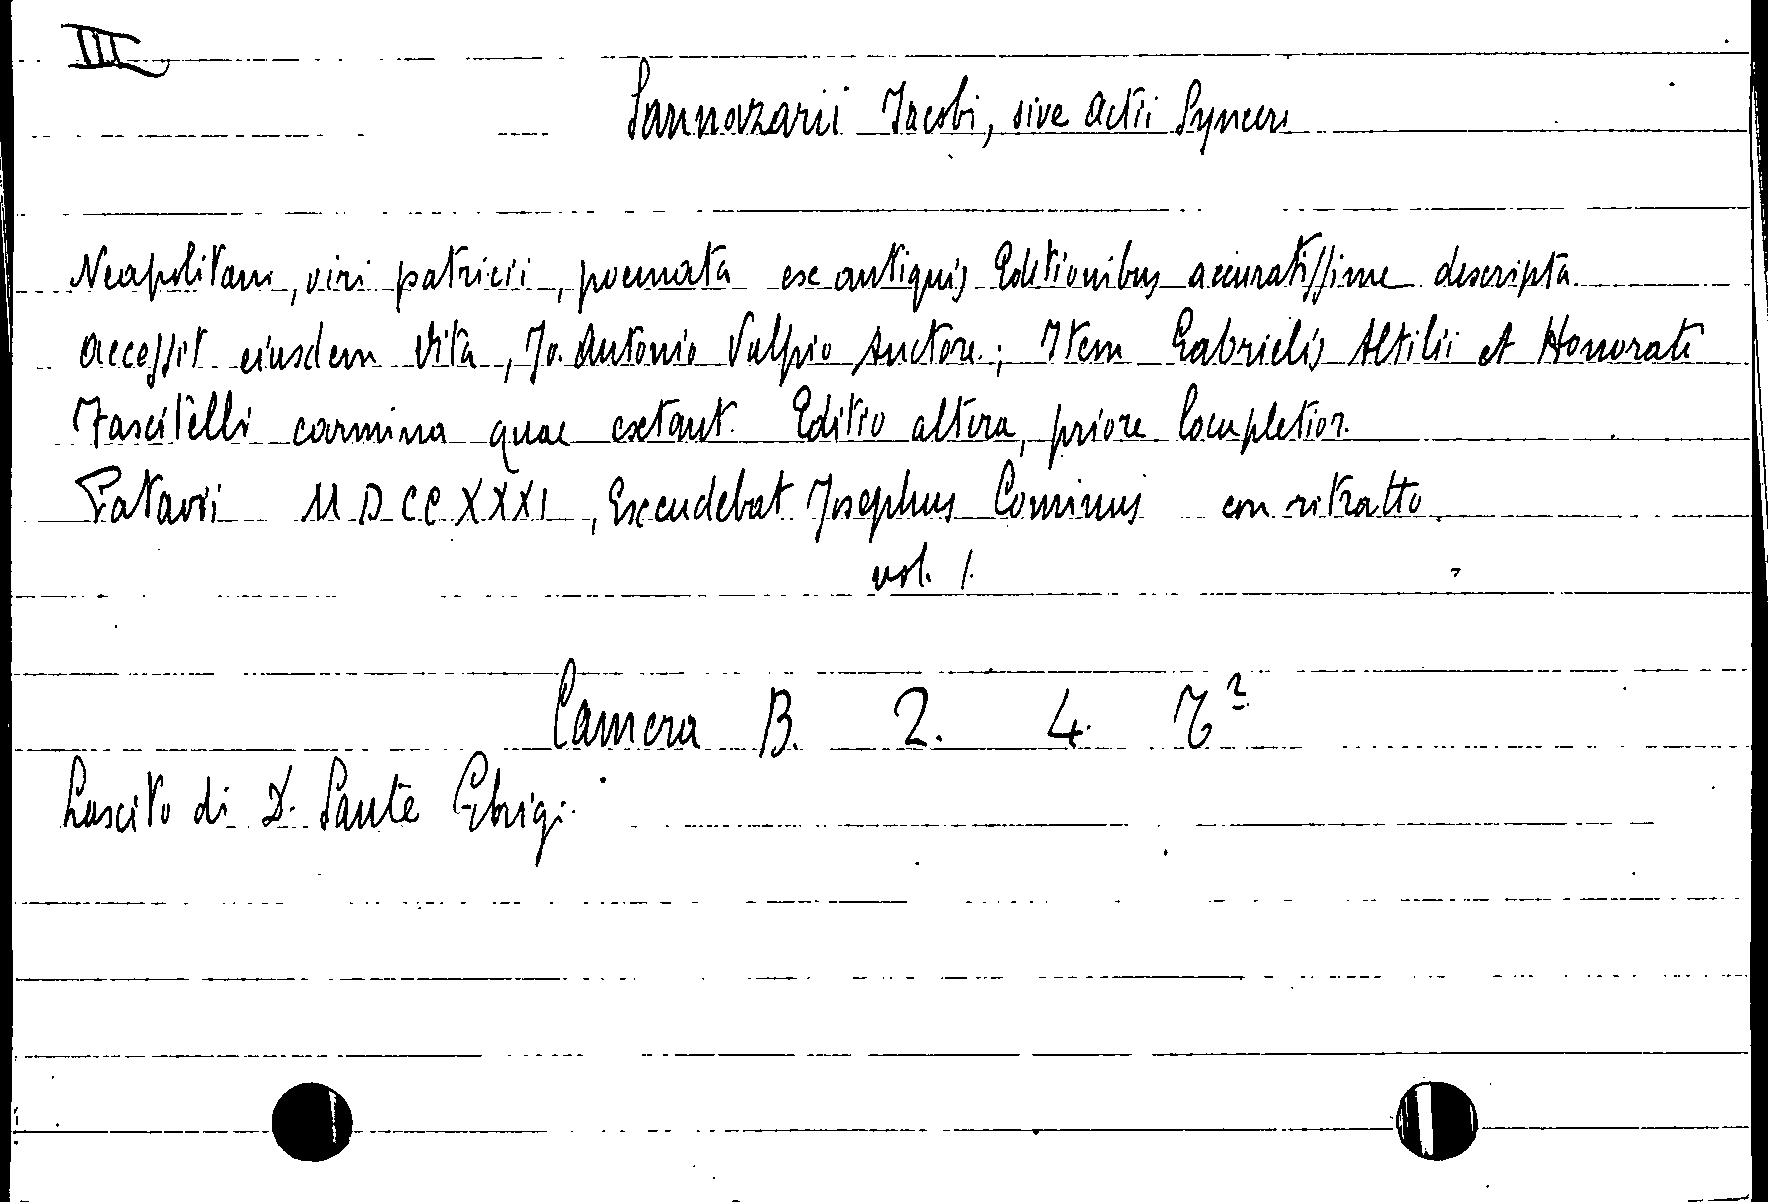 III
Sannazarii Jacobi, sive Actii Synceri
Neapolitani, viri patricii, poemata ex antiquis Editionibus accuratissime descripta.
Accessit eiusdem Vita, Jo. Antonio Vulpio Auctore; Item Gabrielis Altilii et Honorati
Fascitelli carmina quae extant. Editio altera, priore locupletior.
Patavii MDCCXXXI, Excudebat Josephus Cominus con ritratto.
vol. 1.
Camera B. 2. 4.
Lascito di D. Sante